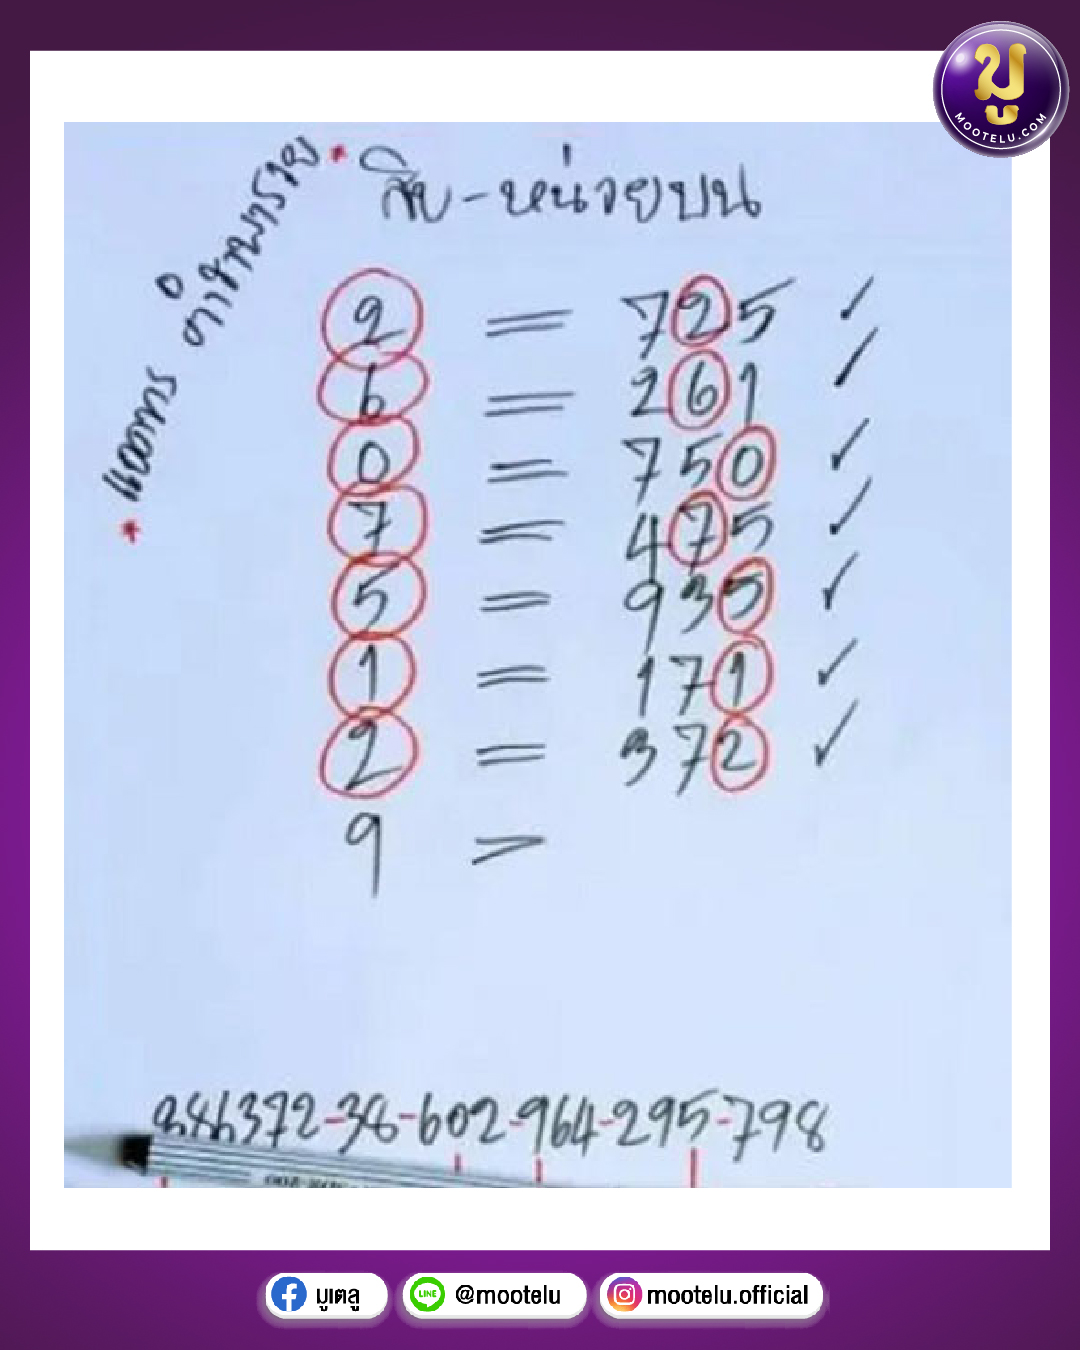 มู
MOOTELU.COM
* แอดการ คำชำพาราย *
สิบ-หน่วยบน
2 = 725 ✓
6 = 261 ✓
0 = 750 ✓
7 = 475 ✓
5 = 935 ✓
1 = 171 ✓
2 = 372 ✓
9 =
986372-38-602-964-295-798
มูเตลู
LINE
@mootelu
mootelu.official